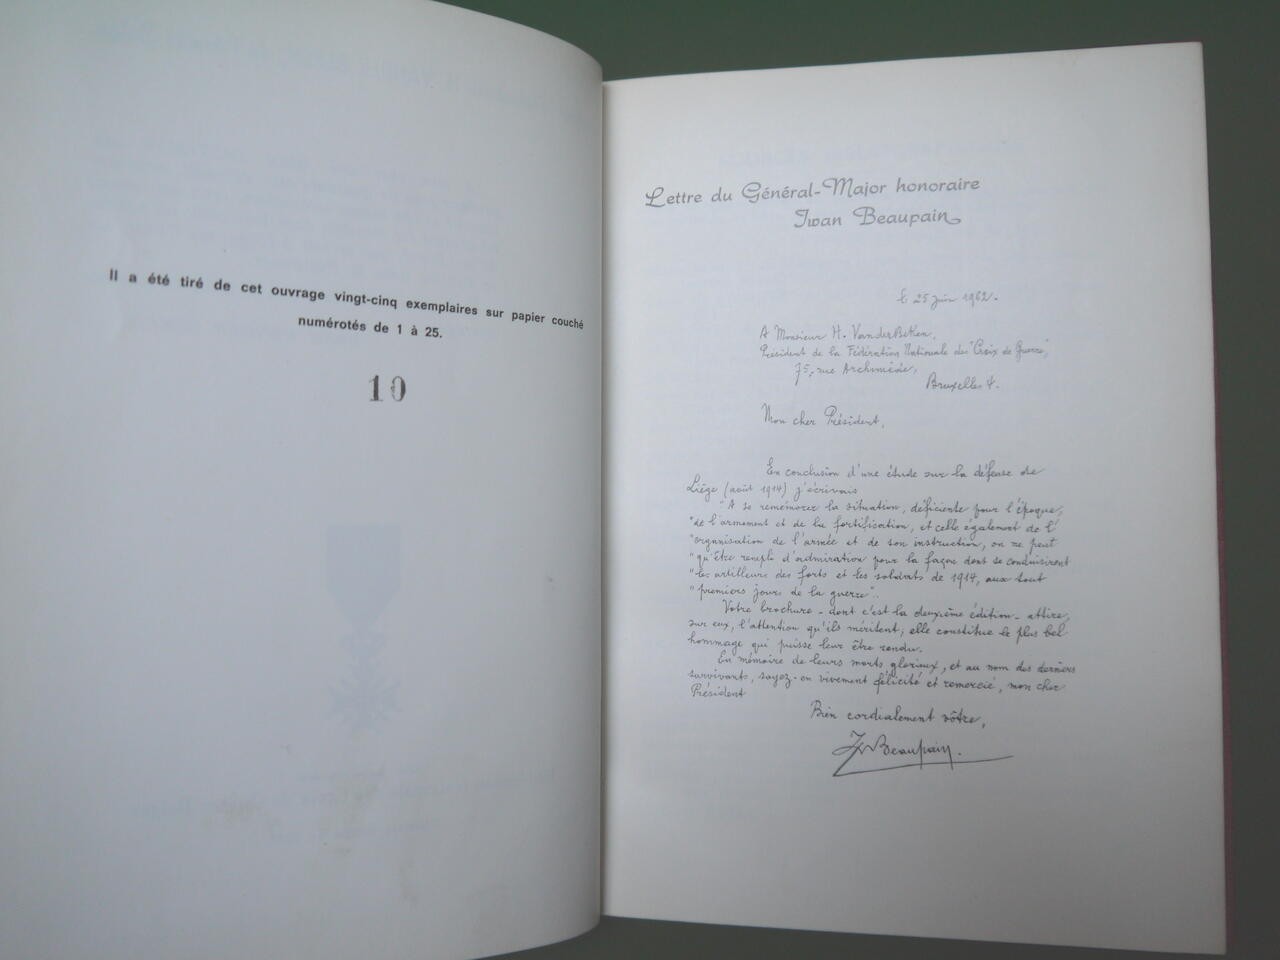 Il a été tiré de cet ouvrage vingt-cinq exemplaires sur papier couché
numérotés de 1 à 25.
10
Lettre du Général-Major honoraire
Iwan Beaupain
le 25 juin 1962.
A Monsieur H. VanderBeken,
Président de la Fédération Nationale des "Croix de Guerre",
75, rue Archimède,
Bruxelles 4.
Mon cher Président,
En conclusion d'une étude sur la défense de
Liège (août 1914) j'écrivais
"A se remémorer la situation, déficiente pour l'époque,
"de l'armement et de la fortification, et celle également de l'
"organisation de l'armée et de son instruction, on ne peut
"qu'être rempli d'admiration pour la façon dont se conduisirent
"les artilleurs des forts et les soldats de 1914, aux tout
"premiers jours de la guerre".
Votre brochure - dont c'est la deuxième édition - attire,
sur eux, l'attention qu'ils méritent; elle constitue le plus bel
hommage qui puisse leur être rendu.
En mémoire de leurs morts glorieux, et au nom des derniers
survivants, soyez-en vivement félicité et remercié, mon cher
Président
Bien cordialement vôtre,
Iw Beaupain.